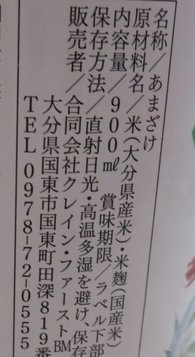 名称/あまざけ
原材料名/米(大分県産米)・米麹(国産米)
内容量/900㎖ 賞味期限/ラベル下部
保存方法/直射日光・高温多湿を避け、保存
販売者/合同会社クレイン・ファーストBM
大分県国東市国東町田深819番
TEL 0978-72-0555